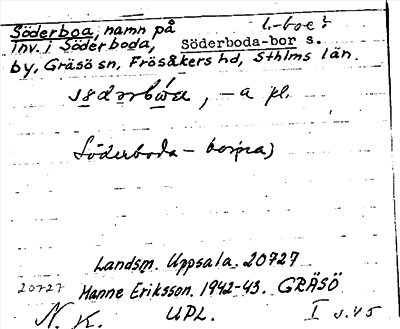 Söderboa, namn på l.-boe?
inv. i Söderboda, Söderboda-bor s.
by, Gräsö sn, Frösåkers hd, Sthlms län.
, -a pl.
Söderboda-
Landsm. Uppsala. 20727
20727 Hanne Eriksson. 1942-43. GRÄSÖ
N. K. UPL. I s. 45